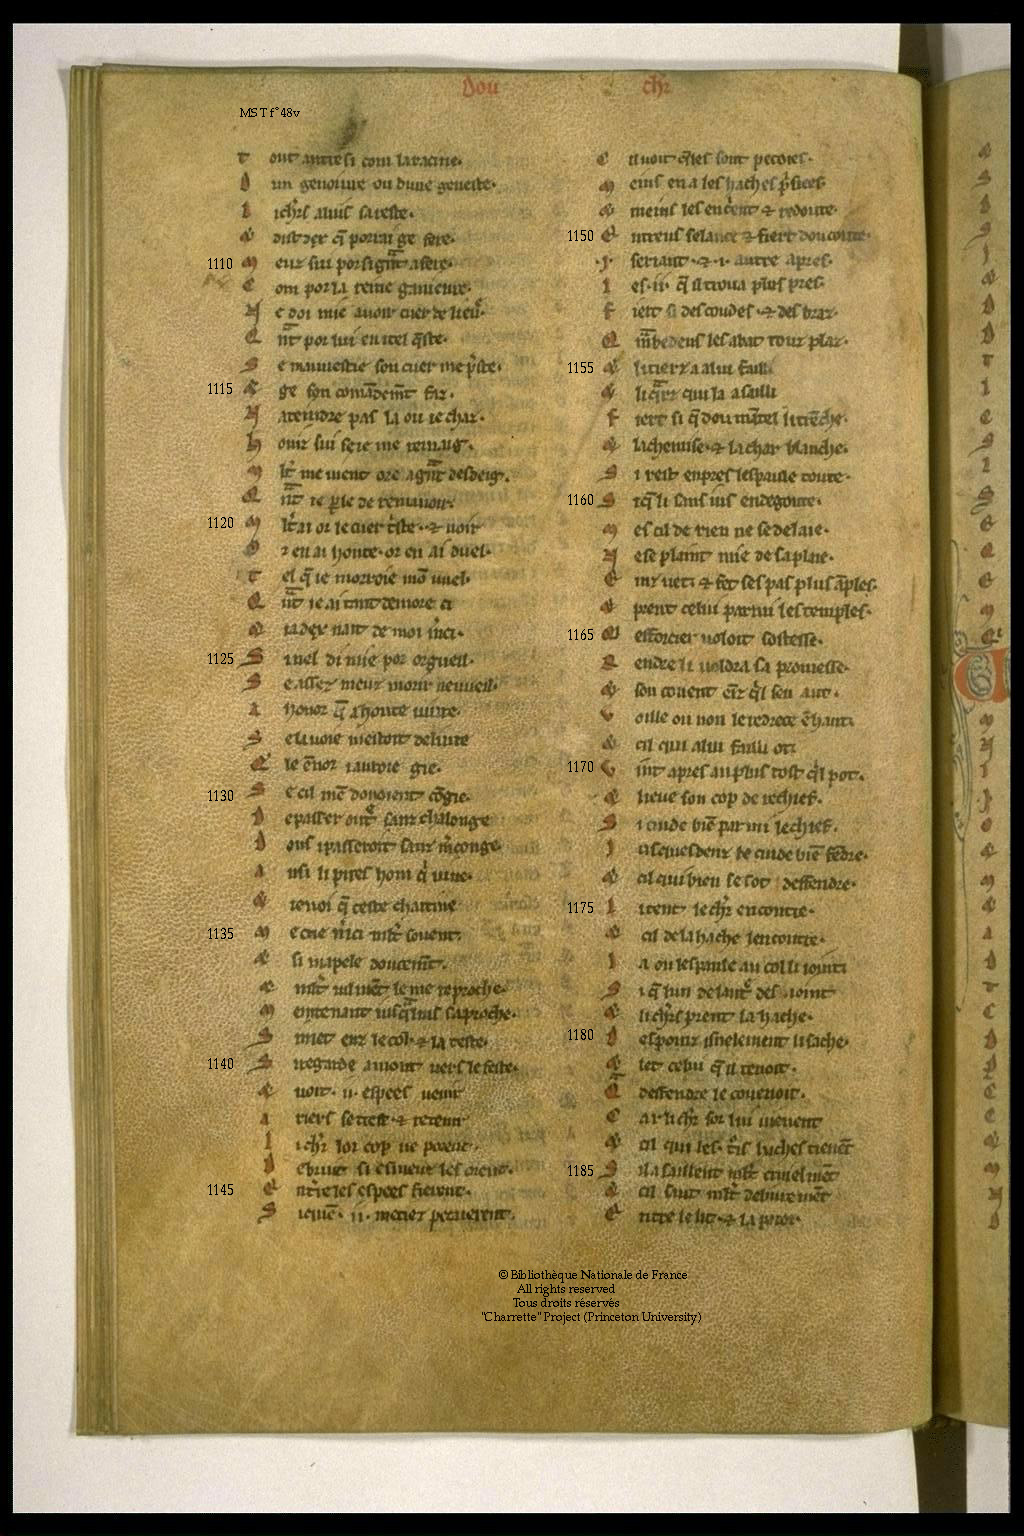 dou chr
MS T f° 48v
T out autresi com la racine.
D un genoiure ou dune geneste.
L ichrs auis sa teste.
& dist dex q̄ porrai ge fere.
1110 M eur sui por si gn̄t afere
C om por la reine ganieure.
N e doi mie auoir cuer de lieu͛.
Q n̄t por lui en itel q̄ste.
S e mauuestie son cuer me p̄ste.
1115 & ge son comādem̄t faz.
N atendre pas la ou ie chaz.
H oniz sui se ie me remaig.
M lt̄ me vient ore a gn̄t desdeig.
Q n̄t ie ple de remanoir.
1120 M lt̄ ai or le cuer t̄ste. & noir
O r en ai honte. or en ai duel.
T el q̄ ie morroie mō vuel.
Q n̄t ie ai tant demore ci
& ia dex nait de moi m̄ci.
1125 S i nel di mie por orgueil.
S e assez meuz morir ne vueil.
A honor q̄ a honte uiure.
S e la uoie mestoit deliure
Q ie ēnor i auroie gie.
1130 S e cil mē donoient cōgie.
D e passer out͛ sanz chalonge
D ons i passeroit sanz m̄conge
A usi li pires hom q̄ uiue.
& ie uoi q̄ ceste chaitiue
1135 M e crie m̄ci mlt̄ souent.
& si mapele doucem̄t.
& mlt̄ uilmēt le me reproche.
M eintenant iusq̄ luis saproche.
S i met enz le col. & la teste.
1140 S i regarde amont uers le feste.
& uoit. ii. espees uenir
A riers se trest. & retenir
L i chr̄ lor cop ne porent.
D e bruier si esmeuz les orent.
1145 Q ntre les espees fierent.
S i qmē. ii. moitiez peceierent.
C il uoit q̄les sont peciees.
M eins en a les haches p̄sices
& meins les encrent & redoute.
1150 E ntreus selance & fiert dou coute
. I. seriant. & . i. autre apres.
L es .ii. q̄ il troua plus pres.
F iert si des coudes. & des braz.
Q m̄bedeus les abat touz plaz.
1155 & li tierz a alui failli
& li q̄rz qui la asailli
F iert si q̄ dou mātel li trēche.
& la chemise. & la char blanche.
S i rest enpres lespaule toute.
1160 S iq̄ li sans ius en degoute.
M es cil de rien ne se delaie.
N e se plaint mie de sa plaie.
E inz uet & fet ses pas plus āples.
& prent celui parmi les temples.
1165 & efforcier uoloit sostesse.
R endre li uoldra sa promesse.
& son couent eīz q̄l sen aut.
V oille ou non le redrece ē haut.
& cil qui alui failli ot
1170 V int apres au plus tost q̄l pot.
& lieue son cop de rechief.
S i cuide biē par mi le chief.
I usques denz le cuide biē fēdre.
& cil qui bien se sot deffendre.
1175 L i tent le chr̄ encontre.
& cil de la hache lencontre.
L a ou lespaule au col li ioint
S i q̄ lun de laut͛ des ioint
& li chrs prent la hache.
1180 D es poinz isnelement li sache.
& let celui q̄ il tenoit.
Q deffendre le couenoit.
C ar li chr̄ sor lui uienent
& cil qui les. t̄is haches tienēt
1185 S il asaillent mlt̄ cruelmēt
& cil saut mlt̄ deliuremēt
E ntre le lit. & la paroi.
© Bibliothèque Nationale de France
All rights reserved
Tous droits réservés
"Charrette" Project (Princeton University)